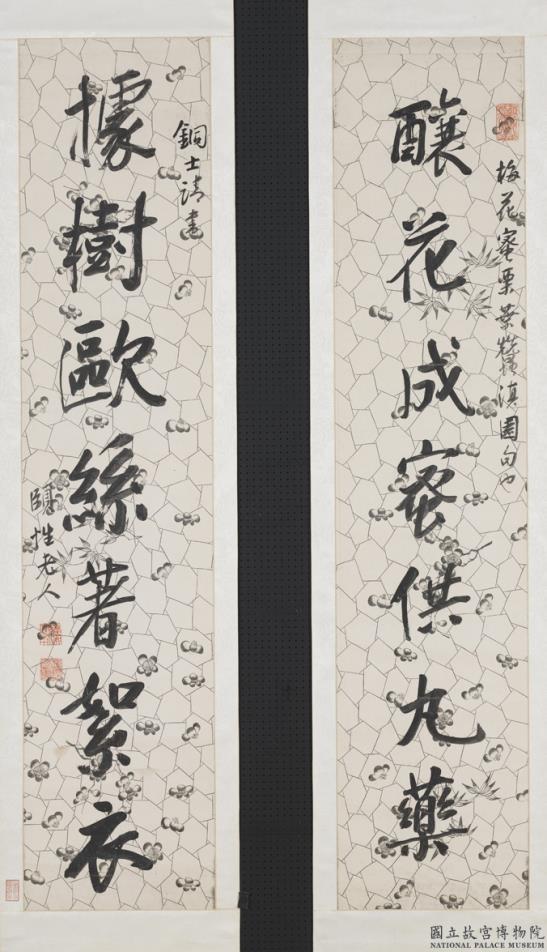 釀花成蜜供丸藥
梅花蜜栗葉滇園句也
據樹歐絲著絮衣
銅士請書
頤性老人
國立故宮博物院
NATIONAL PALACE MUSEUM